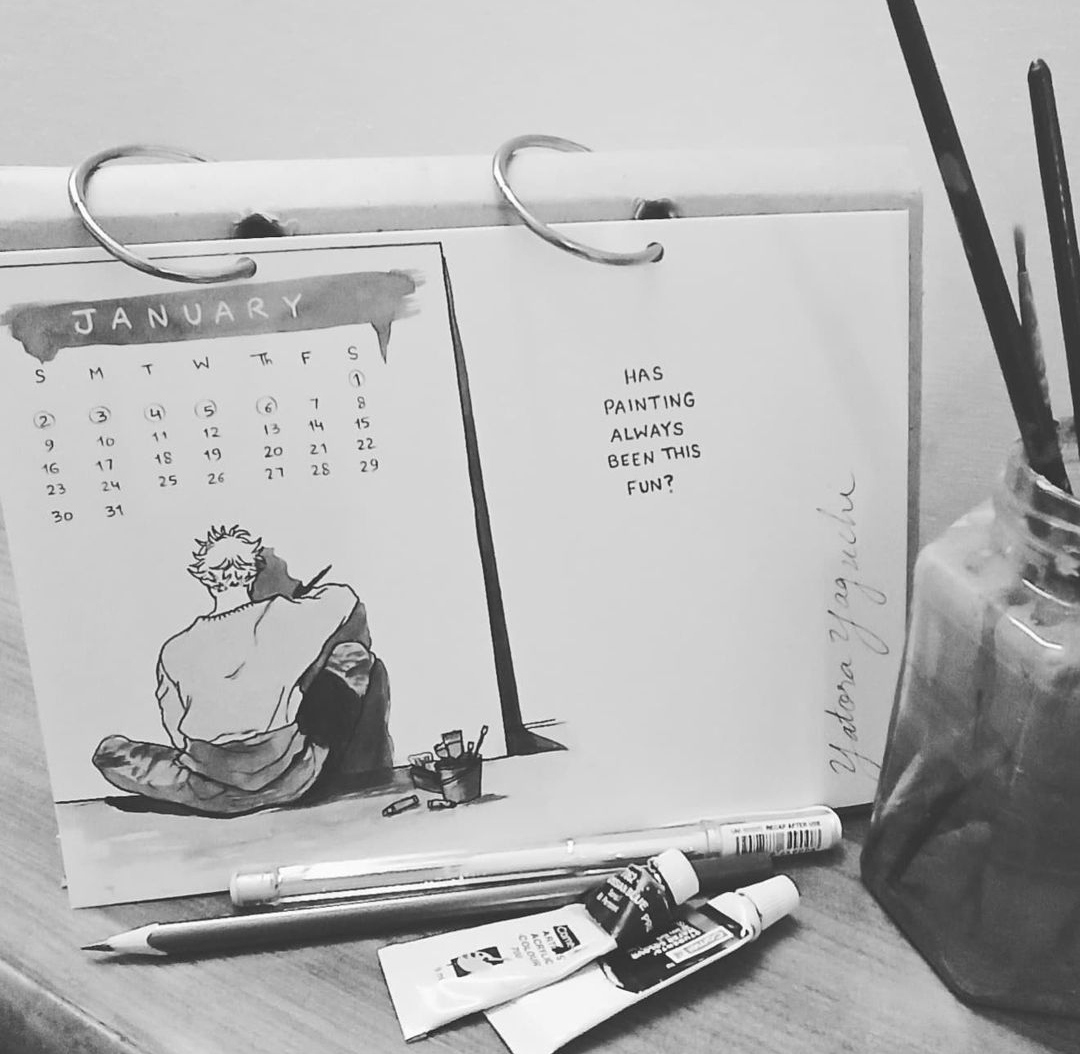 JANUARY
S M T W Th F S
1
2 3 4 5 6 7 8
9 10 11 12 13 14 15
16 17 18 19 20 21 22
23 24 25 26 27 28 29
30 31
HAS
PAINTING
ALWAYS
BEEN THIS
FUN?
Yatora Yaguchi
RECAP AFTER USE
ACRYLIC
COLOUR